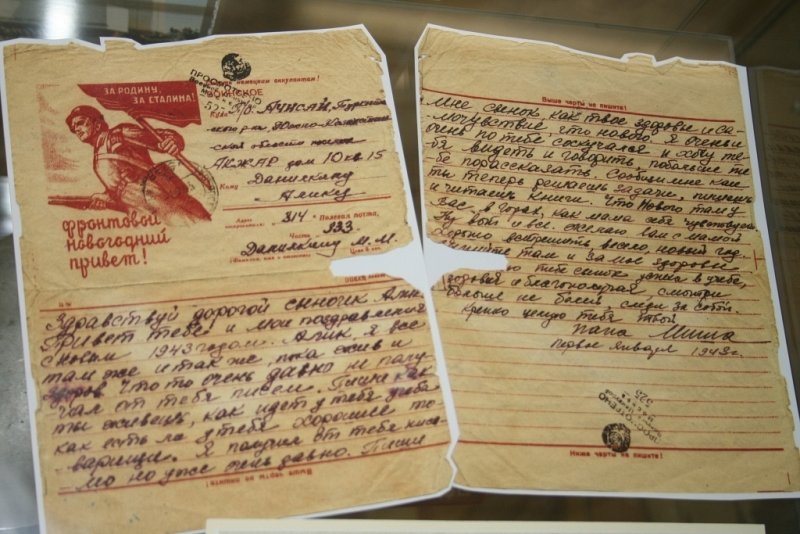 ЗА РОДИНУ,
ЗА СТАЛИНА!
фронтовой
новогодний
привет!
немецким оккупантам!
ВОИНСКОЕ
Куда АЧИСАЙ,
Южно-Казахстан
ской области
АКЖАР дом 10 кв 15
Кому Данилкину
Алику
Адрес 314 Полевая почта,
Часть 333
Данилкину М. М.
Здравствуй дорогой сыночик Алик
Привет тебе и мое поздравления
с новым 1943 годом. Алик, я все
там же и так же, пока жив и
здоров. Что то очень давно не полу
чал от тебя писем. Пиши как
ты живешь, как идет у тебя учеба
как есть ли у тебя хорошие то
варищи. Я получил от тебя пись
мо но уже очень давно. Пиши
Выше черты не пишите!
Выше черты не пишите!
мне сынок, как твое здоровье и са
мочувствие, что нового. Я очень и
очень по тебе соскучался и хочу те
бя видеть и говорить, побольше те
бе порассказать. Сообщи мне как
ты теперь решаешь задачи, пишешь
и читаешь книги. Что нового там у
вас, в город, как мама себя чувствует
Ну вот и все. желаю вам с мамой
хорошо встретить, весело, новый год.
там и за мое здоровье
тебе сынок успеха в учебе,
здоровья и благополучия смотри
больше не болей, следи за собой.
Крепко целую тебя твой
Папа Миша
первое января 1943 г.
ПРОСМОТРЕНО
525
Ниже черты не пишите!